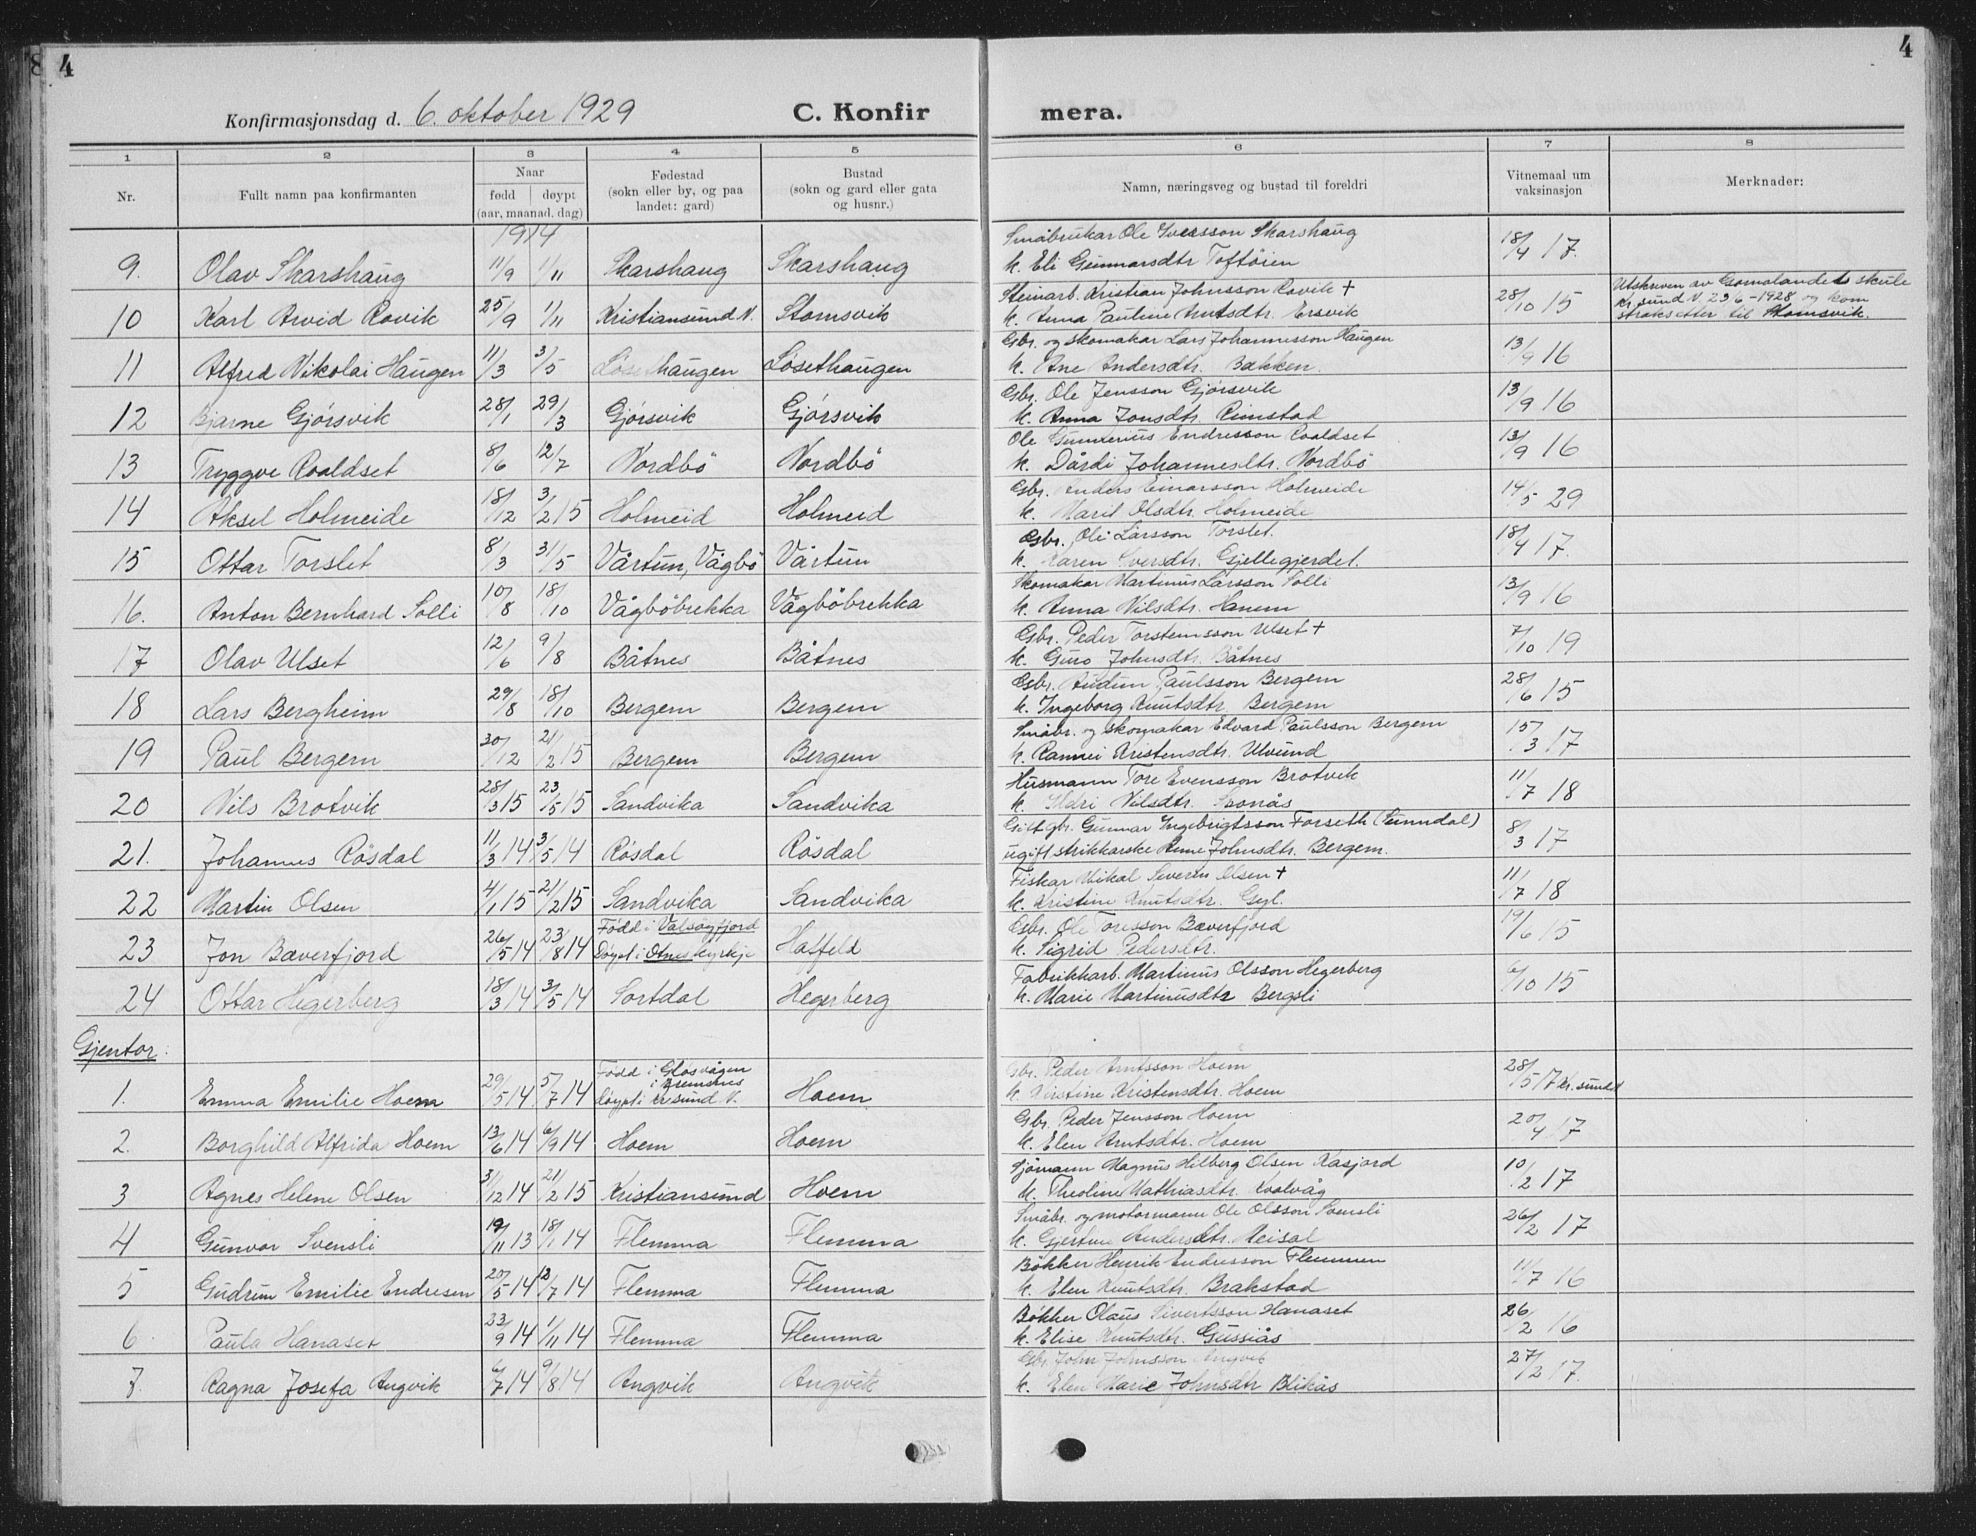 4
4
Konfirmasjonsdag d. 6. oktober 1929
C. Konfir
mera.
1 2 3 4 5 6 7 8
Nr.
Fullt namn paa konfirmanten
Naar
fødd døypt
(aar, maanad, dag)
Fødestad
(sokn eller by, og paa
landet: gard)
Bustad
(sokn og gard eller gata
og husnr.)
Namn, næringsveg og bustad til foreldri
Vitnemaal um
vaksinasjon
Merknader:
1914
Småbrukar Ole Iversson Skarshaug
9. Olav Skarshaug 11/9 1/11 Skarshaug Skarshaug k. Eli Gunnarsdtr Toftöien 18/4 17.
Steinarb. Kristian Johnsson Rovik +
10 Karl Arvid Rovik 25/9 1/11 Kristiansund N. Stomsvik k. Anna Pauline Knutsdtr. Ersvik 28/10 15
Utskriven av Gomalandets skule
Kr.sund N. 23 6-1928 og kom
straks etter til Stomsvik.
Gbr. og skomakar Lars Johannesson Haugen
11 Alfred Nikolai Haugen 11/3 3/5 Løsethaugen Løsethaugen k. Ane Andersdtr. Bakken. 13/9 16
Gbr. Ole Jensson Gjørsvik
12 Bjarne Gjørsvik 28/1 29/3 Gjørsvik Gjørsvik k. Anna Jonsdtr. Rimstad 13/9 16
Ole Gunnerius Endresson Roaldset
13 Tryggve Roaldset 8/6 12/7 Nordbö Nordbö k. Dårdi Johannesdtr. Nordbö 13/9 16
Gbr. Anders Einarsson Holmeide
14 Aksel Holmeide 18/12 3/2 15 Holmeid Holmeid k. Marit Olsdtr. Holmeide 14/5 29
Gbr. Ole Larsson Torslet.
15 Ottar Torslet 8/3 31/5 Vårtun, Vågbö Vårtun k. Karen Iversdtr. Gjellegjerdet. 18/4 17.
Skomakar Martinus Larsson Solli
16. Anton Bernhard Solli 10/8 18/10 Vågböbrekka Vågböbrekka k. Anna Nilsdtr. Hanem 13/9 16
Gbr. Peder Torstensson Ulset +
17 Olav Ulset 12/6 9/8 Båtnes Båtnes k. Guro Johnsdtr. Båtnes 7/10 19
Gbr. Audun Paulsson Bergem
18 Lars Bergheim 29/8 18/10 Bergem Bergem k. Ingeborg Knutsdtr. Bergem 28/6 15
Småbr. og skomakar Edvard Paulsson Bergem
19 Paul Bergem 30/12 21/2 15 Bergem Bergem k. Rannei Kristensdtr. Ulvund 15/3 17
Husmann Tore Evensson Brotvik
20 Nils Brotvik 28/3 15 23/5 15 Sandvika Sandvika k. Ildri Nilsdtr. 11/7 18
Gift gbr. Gunnar Ingebrigtsson Forseth (Sunndal)
21. Johannes Røsdal 11/3 14 3/5 14 Røsdal Røsdal ugift strikkarske Anne Johnsdtr. Bergem. 8/3 17
Fiskar Mikal Severin Olsen +
22 Martin Olsen 4/1 15 21/2 15 Sandvika Sandvika k. Kristine Knutsdtr. Gyl. 11/7 18
Gbr. Ole Toresson Bæverfjord
23 Jon Bæverfjord 26/5 14 23/8 14 Fødd i Valsøyfjord
Døypt i Otnes kyrkje Halfeld k. Sigrid Pedersdtr. 19/6 15
Fabrikkarb. Martinus Olsson Hegerberg
24 Ottar Hegerberg 18/3 14 3/5 14 Sortdal Hegerberg k. Marie Martinusdtr Bergsli 6/10 15
Gjentor:
Gbr. Peder Arntsson Hoem
1. Emma Emilie Hoem 29/5 14 5/7 14 Fødd i Glosvågen
i Bremsnes
døypt i Kr.sund N. Hoem k. Kirstine Kristensdtr. Hoem 28/5 17 Kr.sund
Gbr. Peder Jensson Hoem
2. Borghild Alfrida Hoem 13/6 14 6/9 14 Hoem Hoem k. Elen Arntsdtr. Hoem 20/4 17
Sjömann Magnus Hilberg Olsen Kasjord
3 Agnes Helene Olsen 3/12 14 21/2 15 Kristiansund Hoem k. Theoline Mathiasdtr. Kvalvåg 10/2 17
Småbr. og motormann Ole Olsson Svensli
4 Gunvor Svensli 19/11 13 18/1 14 Flemma Flemma k. Gjertine Andersdtr. Meisal 26/2 17
Bøkker Henrik Endresson Flemmen
5 Gudrun Emilie Endresen 20/5 14 12/7 14 Flemma Flemma k. Elen Knutsdtr. Brakstad 11/7 16
Bøkker Olaus Sivertsson Hanaset
6 Paula Hanaset 23/9 14 1/11 14 Flemma Flemma k. Elise Knutsdtr. Gussiås 26/2 16
Gbr. John Johnsson Angvik
7. Ragna Josefa Angvik 6/7 14 9/8 14 Angvik Angvik k. Elen Marie Johnsdtr Blikås 27/2 17.